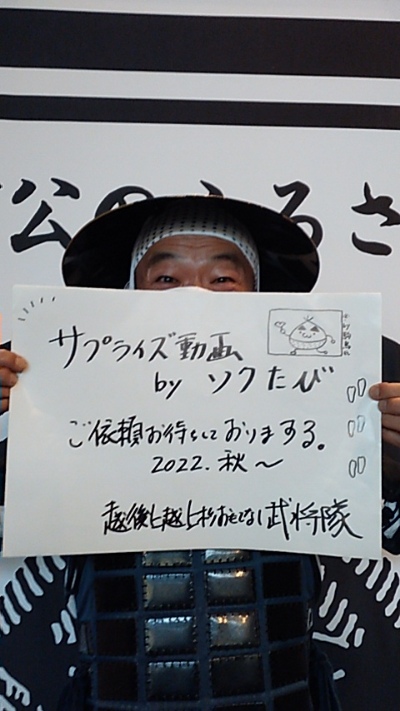 公のふるさ
サプライズ動画
by ソクたび
ご依頼お待ちしておりまする。
2022. 秋〜
越後上越上杉おもてなし武将隊